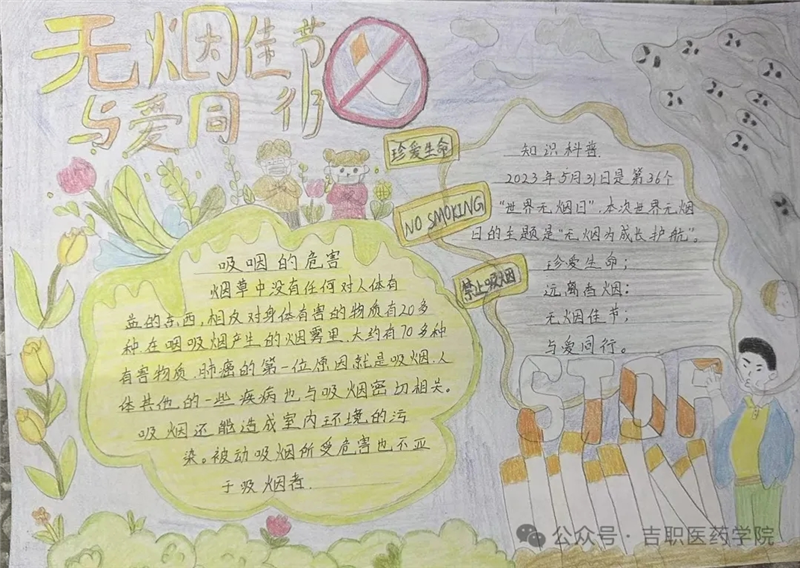 无烟佳节
与爱同行
珍爱生命
NO SMOKING
禁止吸烟
吸咽的危害
烟草中没有任何对人体有
益的东西,相反对身体有害的物质有20多
种在咽吸烟产生的烟雾里,大约有70多种
有害物质.肺癌的第一位原因就是吸烟.人
体其他的一些疾病也与吸烟密切相关。
吸烟还能造成室内环境的污
染。被动吸烟所受危害也不亚
于吸烟者.
知识科普.
2023年5月31日是第36个
“世界无烟日”.本次世界无烟
日的主题是“无烟为成长护航”。
珍爱生命;
远离香烟:
无烟佳节;
与爱同行。
STOP
公众号·吉职医药学院